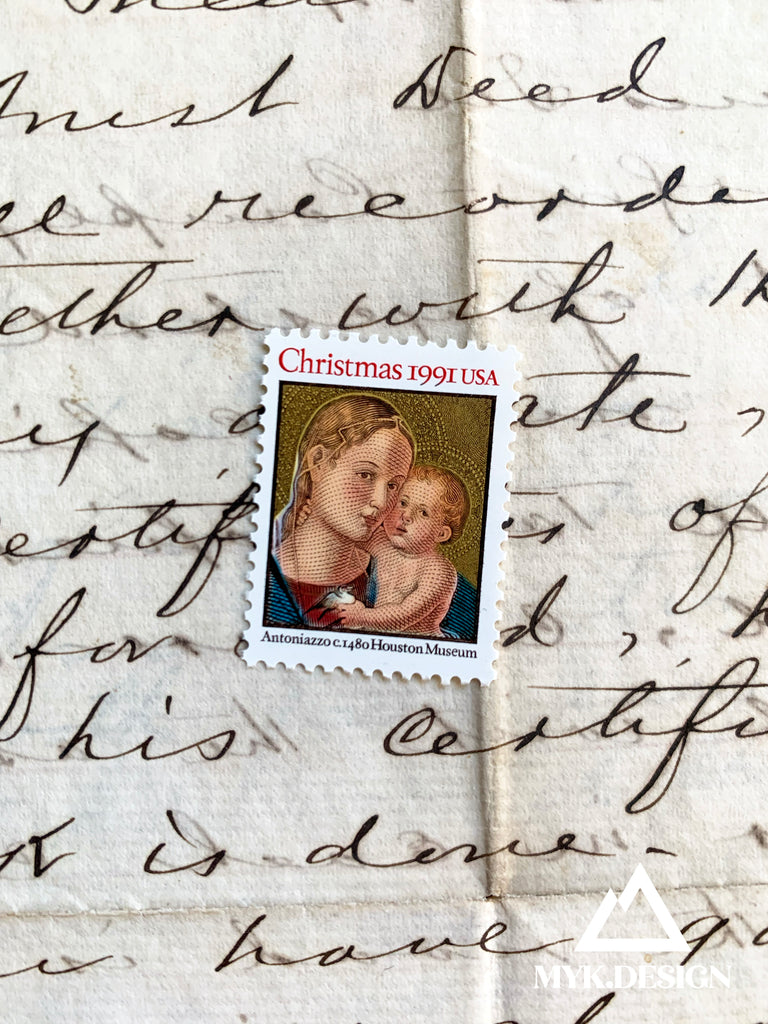 Trust Deed
recorde
ether with th
ate,
ertif of
for d,
his certifi
is done -
have
Christmas 1991 USA
Antoniazzo c.1480 Houston Museum
MYK.DESIGN